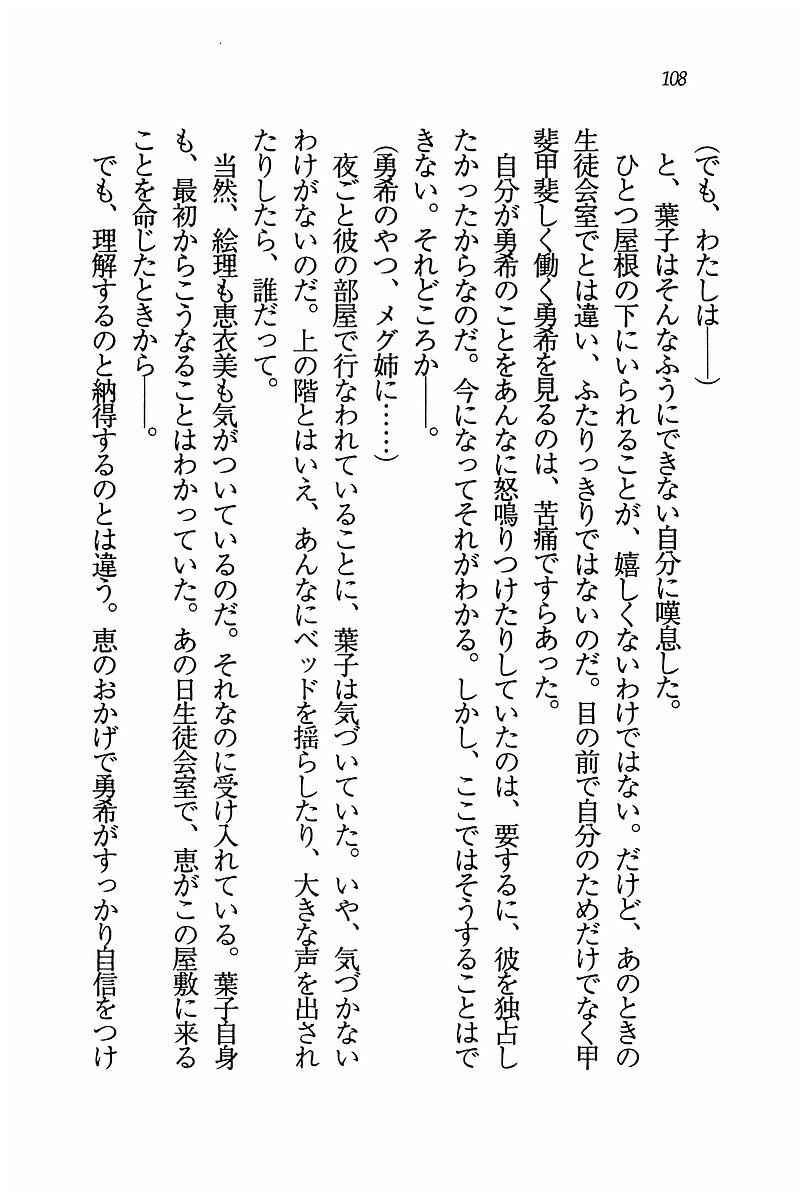 108
(でも、わたしは――)
と、葉子はそんなふうにできない自分に嘆息した。
ひとつ屋根の下にいられることが、嬉しくないわけではない。だけど、あのときの
生徒会室でとは違い、ふたりっきりではないのだ。目の前で自分のためだけでなく甲
斐甲斐しく働く勇希を見るのは、苦痛ですらあった。
自分が勇希のことをあんなに怒鳴りつけたりしていたのは、要するに、彼を独占し
たかったからなのだ。今になってそれがわかる。しかし、ここではそうすることはで
きない。それどころか――。
(勇希のやつ、メグ姉に……)
夜ごと彼の部屋で行なわれていることに、葉子は気づいていた。いや、気づかない
わけがないのだ。上の階とはいえ、あんなにベッドを揺らしたり、大きな声を出され
たりしたら、誰だって。
当然、絵理も恵衣美も気がついているのだ。それなのに受け入れている。葉子自身
も、最初からこうなることはわかっていた。あの日生徒会室で、恵がこの屋敷に来る
ことを命じたときから――。
でも、理解するのと納得するのとは違う。恵のおかげで勇希がすっかり自信をつけ